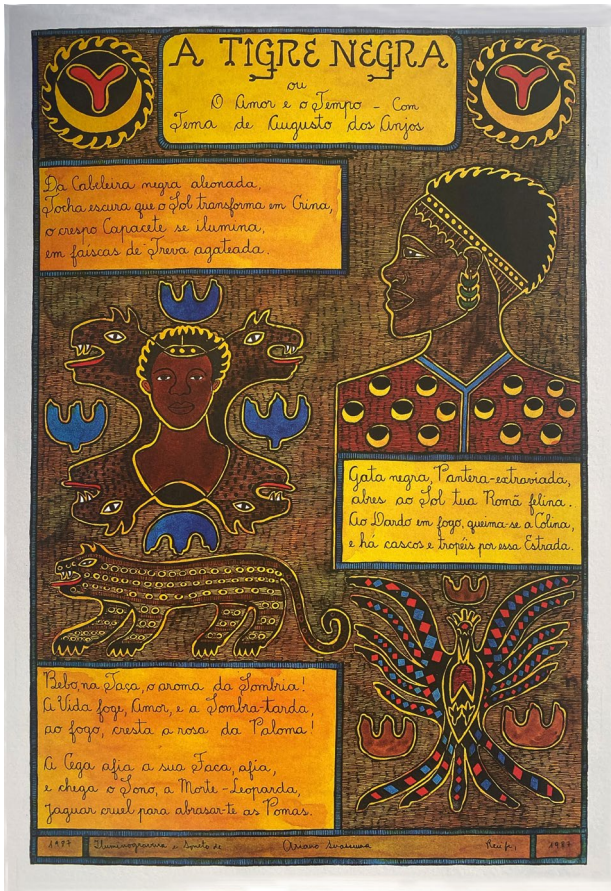 A TIGRE NEGRA
ou
O Amor e o Tempo - Com
Tema de Augusto dos Anjos
Da Cabeleira negra aleonada,
Tocha escura que o Sol transforma em Crina,
o crespo Capacete se ilumina,
em faíscas de Treva agateada.
Gata negra, Pantera-extraviada,
abres ao Sol tua Romã felina.
Ao Dardo em fogo, queima-se a Colina,
e há cascos e tropéis por essa Estrada.
Bebo, na Taça, o aroma da Sombria!
A Vida foge, Amor, e a Sombra-tarda
ao fogo, cresta a rosa da Paloma!
A Cega afia a sua Faca, afia,
e chega o Sono, a Morte-Leoparda,
Jaguar cruel para abrasar-te as Pomas.
1987 Iluminogravura e Soneto de Ariano Suassuna Recife, 1987